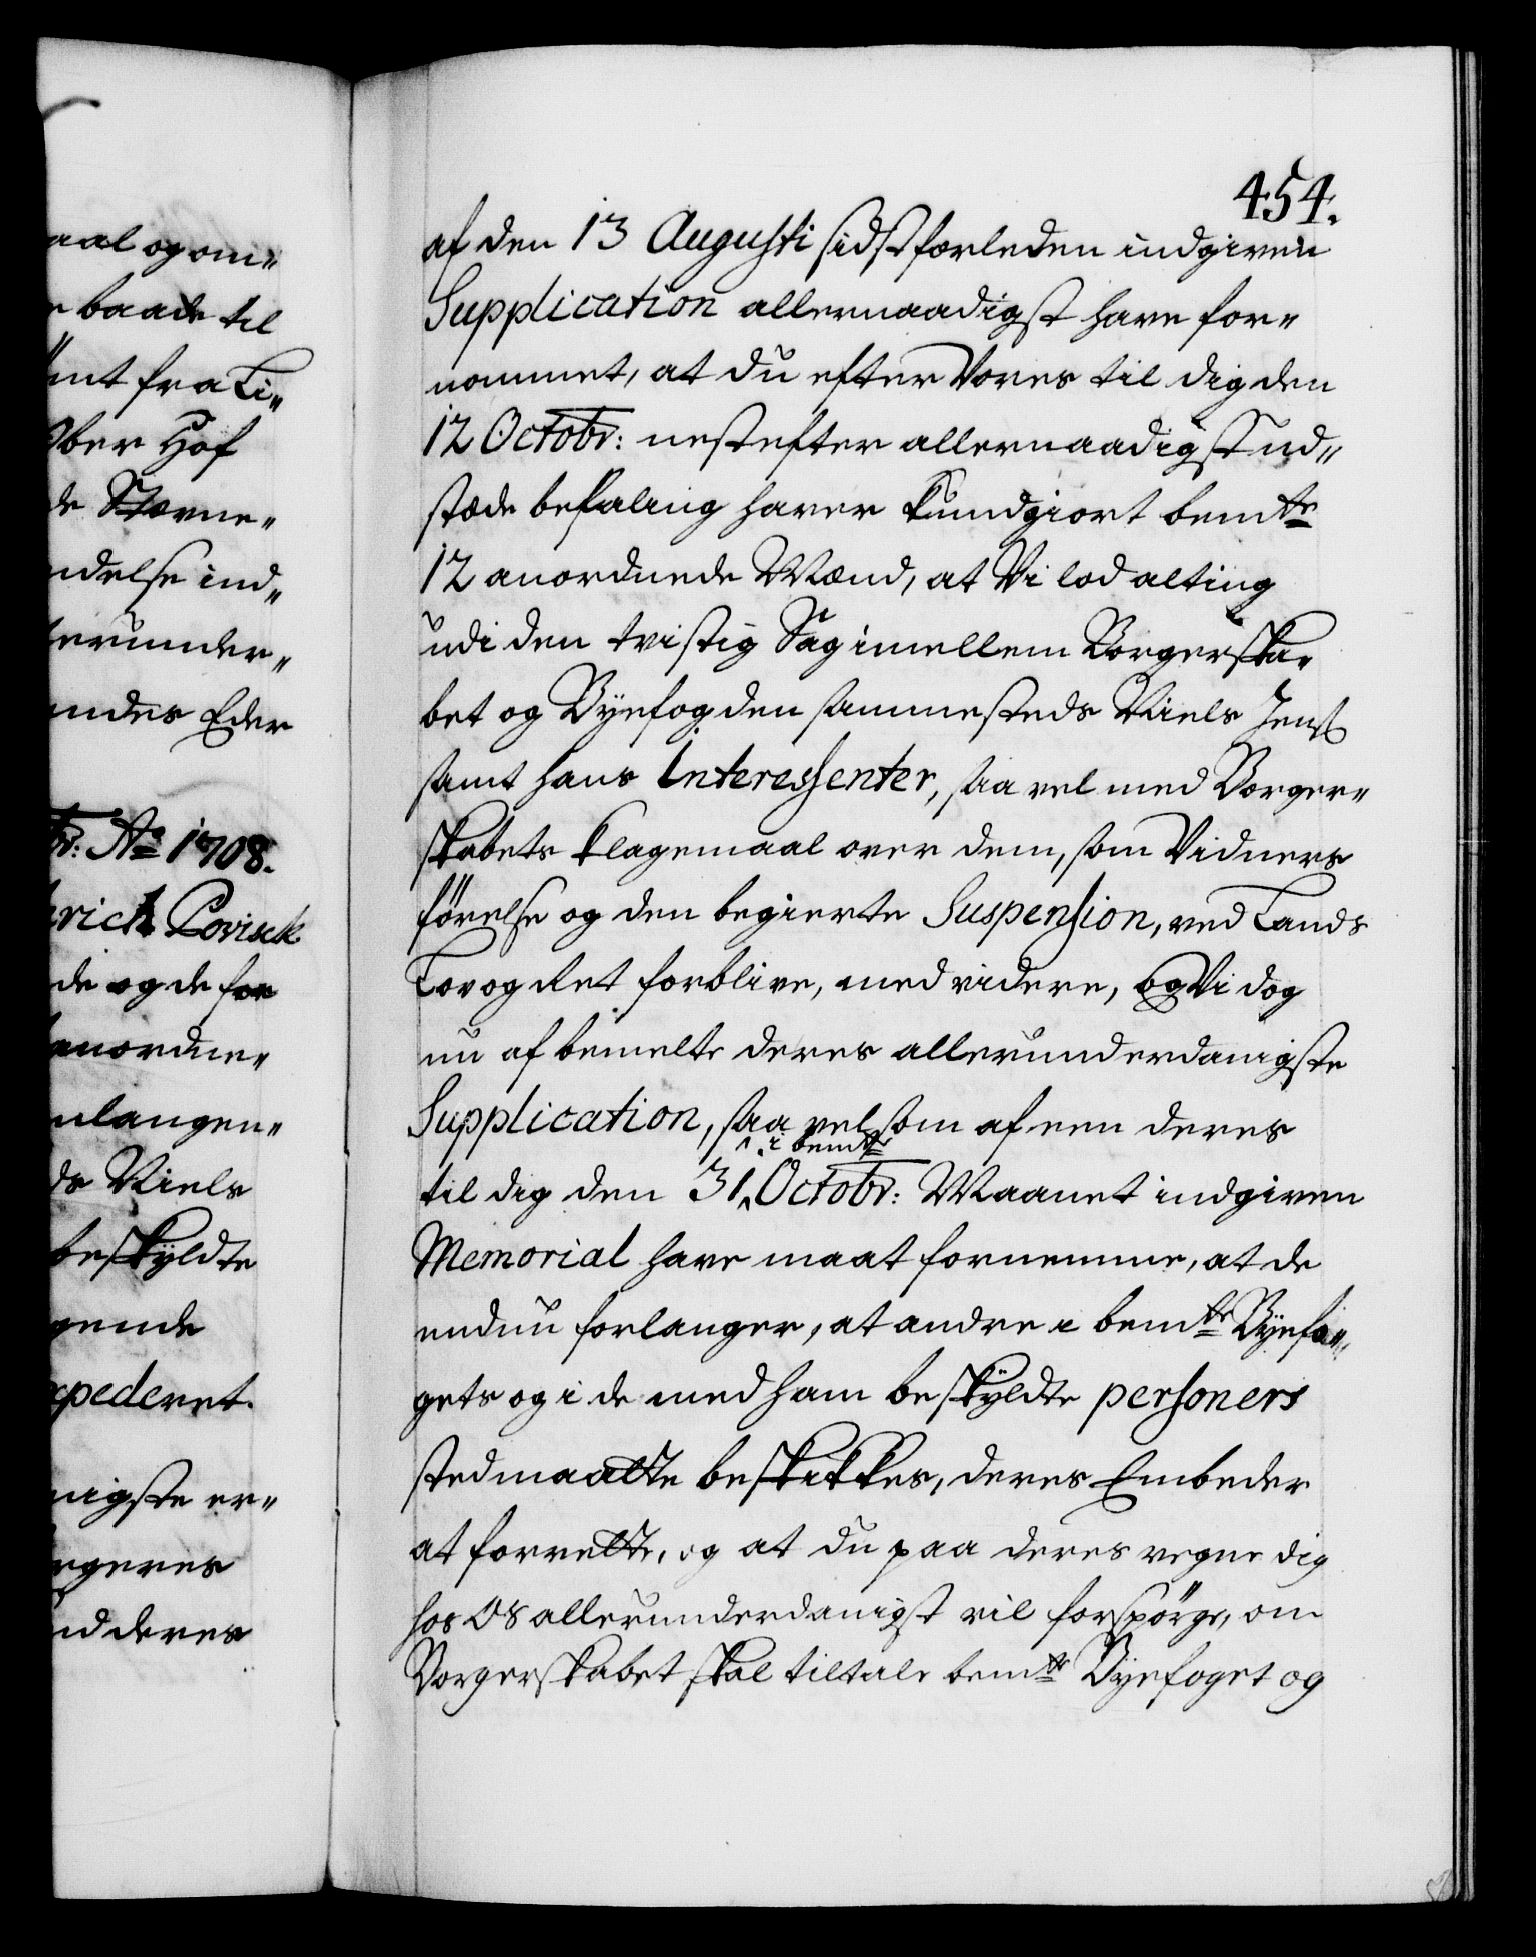 454.
af den 13 Augusti sidstforleden indgiven
Supplication allernaadigst have for„
nommet, at du efter Vores til dig den
12 Octobr: nestefter allernaadigst ud„
stæde befaling haver kundgiort bemte
12 anordnede Mænd, at Vi lod alting
udi den tvistig Sag imellem Borgerska„
bet og Byefogden sammesteds Niels Jens
samt hans Interessenter, saa vel med Borger„
skabets klagemaal over dem, som Vidners
førelse og den begierte Suspension, ved Lands
Lov og Ret forblive, med videre, og Vi dog
nu af bemelte deres allerunderdanigste
Supplication, saa vel som af een deres
i bemte
til dig den 31. Octobr: Maanet indgiven
Memorial have maat fornemme, at de
endnu forlanger, at andre i bemte Byefo„
gets og i de med ham beskyldte personers
sted maatte beskikkes, deres Embeder
at forrette, og at du paa deres vegne dig
hos OS allerunderdanigst vil forspørge, om
Borgerskabet skal tiltale bemte Byefoget og
aal og om„
baade til
mt fra Ti„
Ober Hof
de Stevne„
ndelse ind„
erunder„
andes Eder
br: Ao 1708.
rich Povisck
de og de for
anordne„
nlangen„
ds Niels
beskyldte
gende
xpederet.
nigste er„
rgeres
nd deres